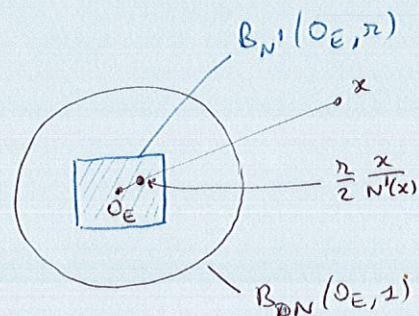 B_{N'}(0_E, r)
x
0_E
\frac{r}{2} \frac{x}{N'(x)}
B_N(0_E, 1)